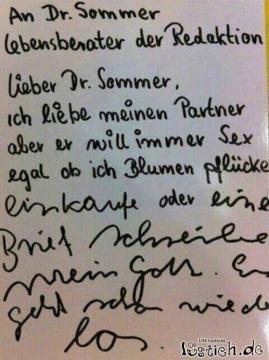 An Dr. Sommer
Lebensberater der Redaktion
Lieber Dr. Sommer,
ich liebe meinen Partner
aber er will immer Sex
egal ob ich Blumen pflücke
einkaufe oder eine
Brief schreibe
mein Gott. Es
geht schon wiede
los.
lustich.de